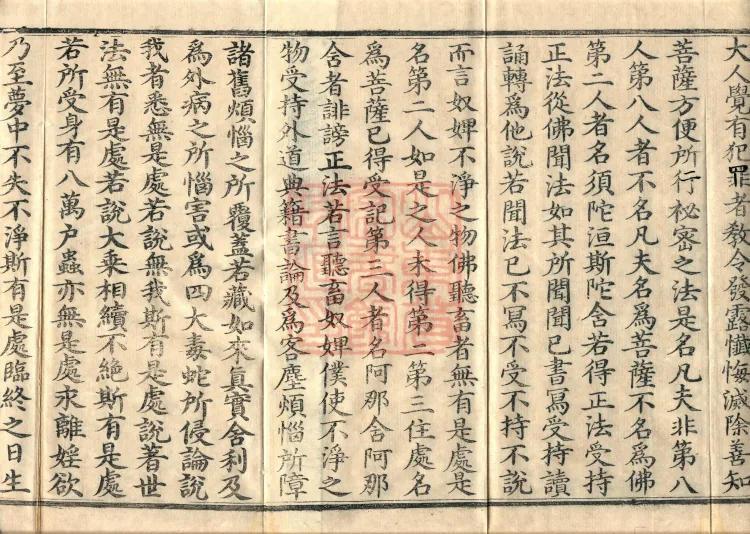 大人覺有犯罪者教令發露懺悔滅除善知
菩薩方便所行祕密之法是名凡夫非第八
人第八人者不名凡夫名為菩薩不名為佛
第二人者名須陀洹斯陀含若得正法受持
正法從佛聞法如其所聞聞已書寫受持讀
誦轉為他說若聞法已不寫不受不持不說
而言奴婢不淨之物佛聽畜者無有是處是
名第二人如是之人未得第二第三住處名
為菩薩已得受記第三人者名阿那含阿那
含者誹謗正法若言聽畜奴婢僕使不淨之
物受持外道典籍書論及為客塵煩惱所障
諸舊煩惱之所覆蓋若藏如來真實舍利及
為外病之所惱害或為四大毒蛇所侵論說
我者悉無是處若說無我斯有是處說著世
法無有是處若說大乘相續不絕斯有是處
若所受身有八萬戶蟲亦無是處永離婬欲
乃至夢中不失不淨斯有是處臨終之日生